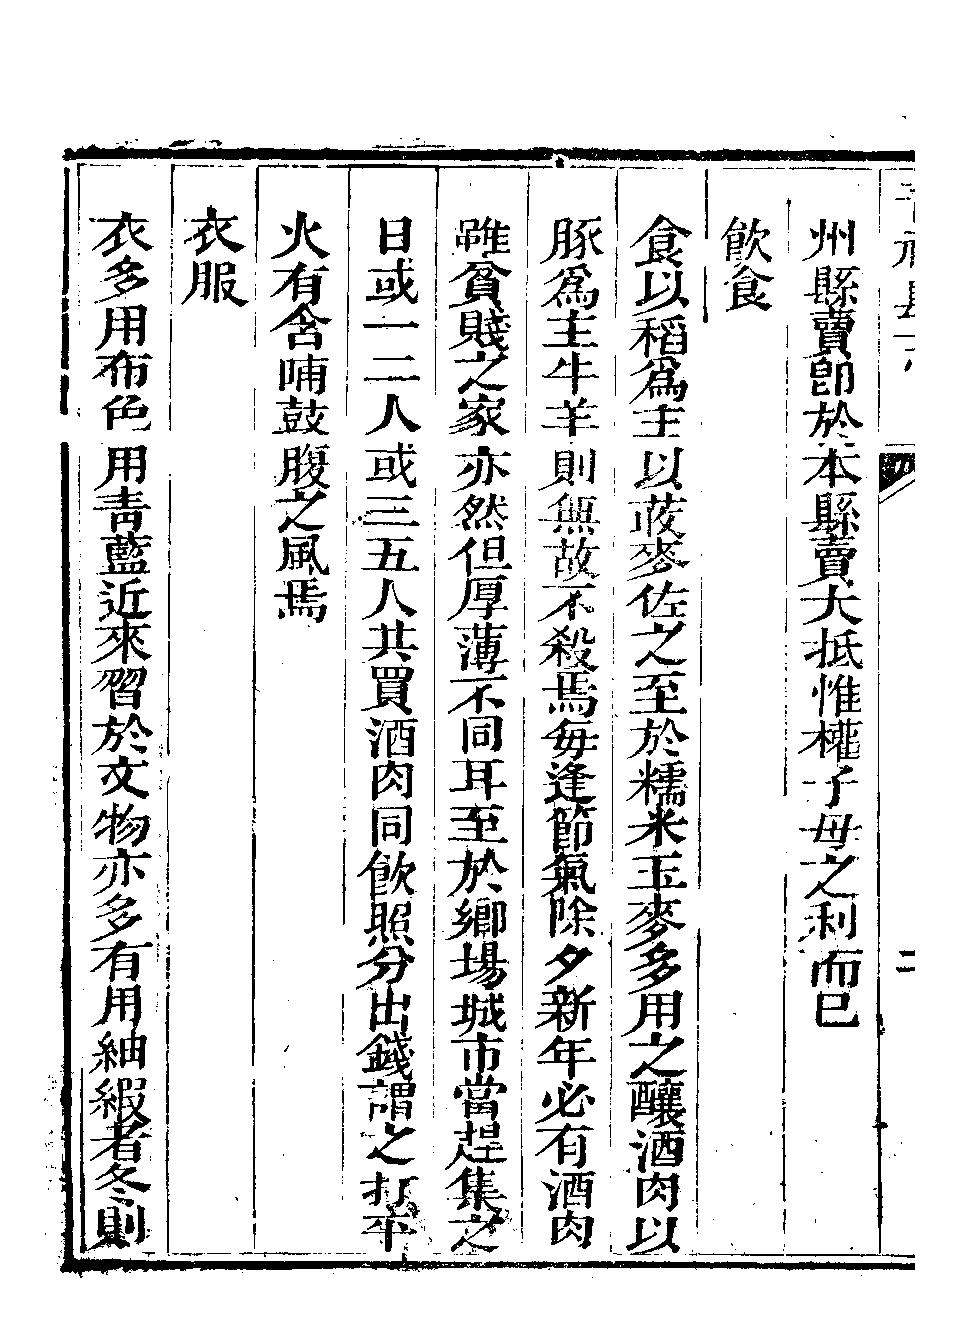 二
州縣賣卽於本縣賣大抵惟權子母之利而已
飲食
食以稻爲主以荍麥佐之至於糯米玉麥多用之釀酒肉以
豚爲主牛羊則無故不殺焉每逢節氣除夕新年必有酒肉
雖貧賤之家亦然但厚薄不同耳至於鄉場城市當趕集之
日或一二人或三五人共買酒肉同飲照分出錢謂之打平
火有含哺鼓腹之風焉
衣服
衣多用布色用靑藍近來習於文物亦多有用紬緞者冬則